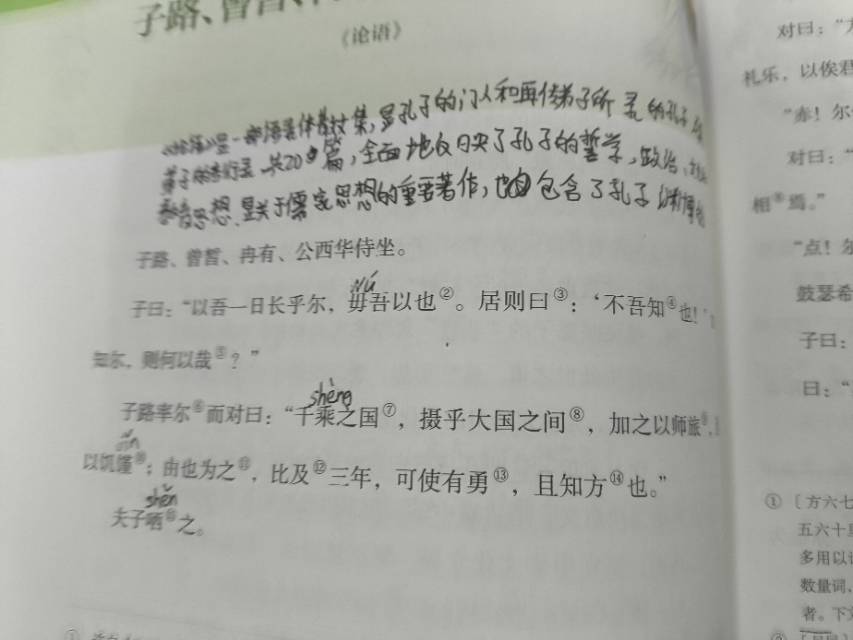 子路、曾皙、
《论语》
《论语》是一部语录体散文集,是孔子的门人和再传弟子所录的孔子
弟子的言行录,共20篇,全面地反映了孔子的哲学,政治、
教育思想,是关于儒家思想的重要著作,也包含了孔子渊博
子路、曾皙、冉有、公西华侍坐。
wú
子曰：“以吾一日长乎尔，毋吾以也②。居则曰③：‘不吾知④也！’
知尔，则何以哉⑤？”
shèng
子路率尔⑥而对曰：“千乘之国⑦，摄乎大国之间⑧，加之以师旅⑨，
jǐn
以饥馑⑩；由也为之⑪，比及⑫三年，可使有勇⑬，且知方⑭也。”
shěn
夫子哂⑮之。
①
对曰：“
礼乐，以俟君
“赤！尔
对曰：“
相⑧焉。”
“点！尔
鼓瑟希
子曰：
曰：“
①〔方六七
五六十里
多用以
数量词、
者。下